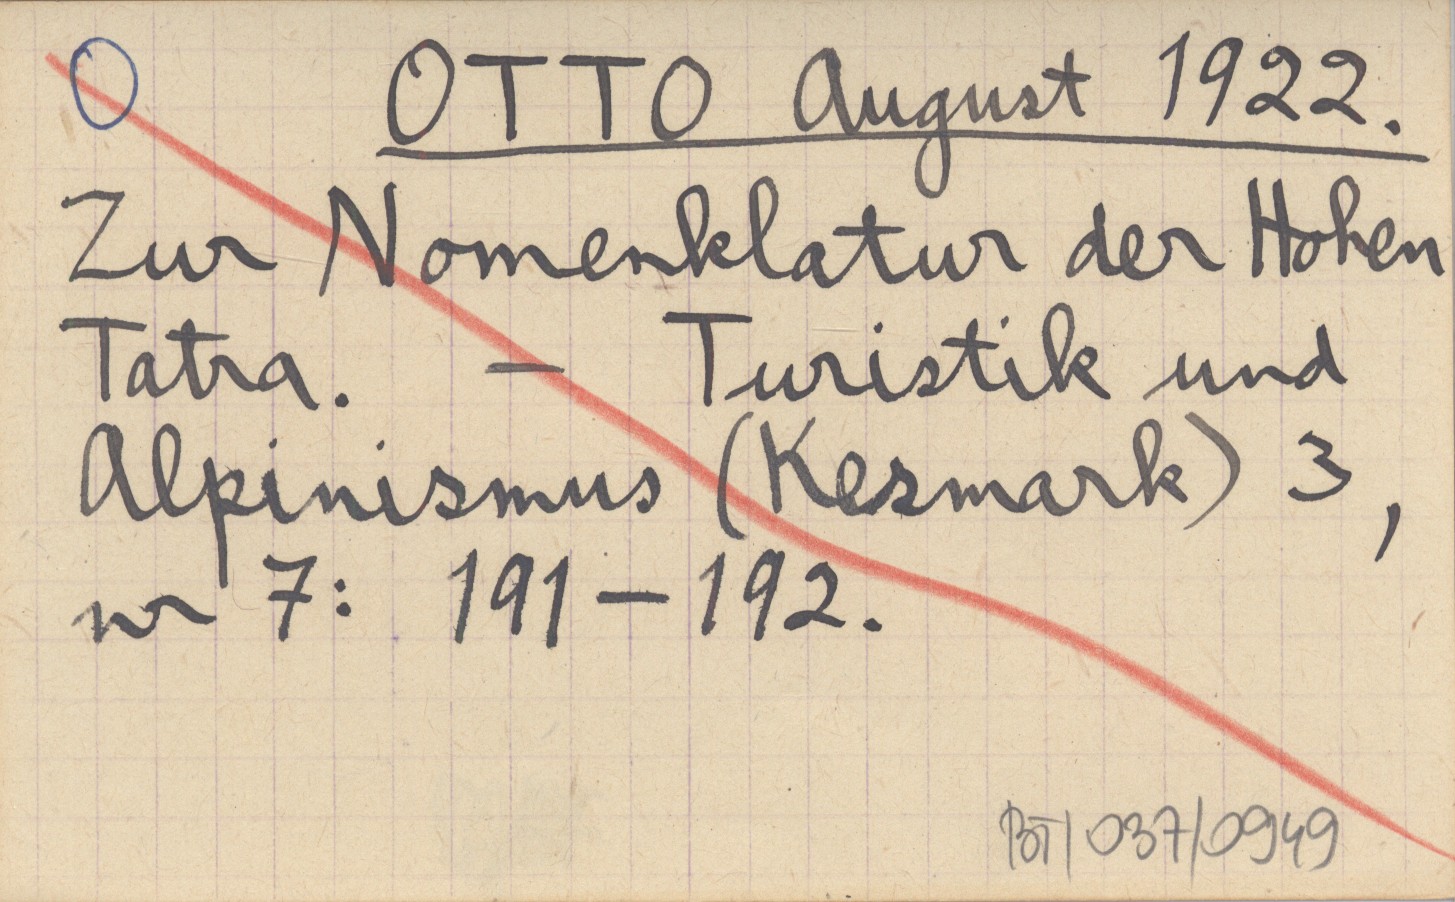 O OTTO August 1922.
Zur Nomenklatur der Hohen
Tatra. — Turistik und
Alpinismus (Kesmark) 3,
nr 7: 191—192.
BT/037/0949